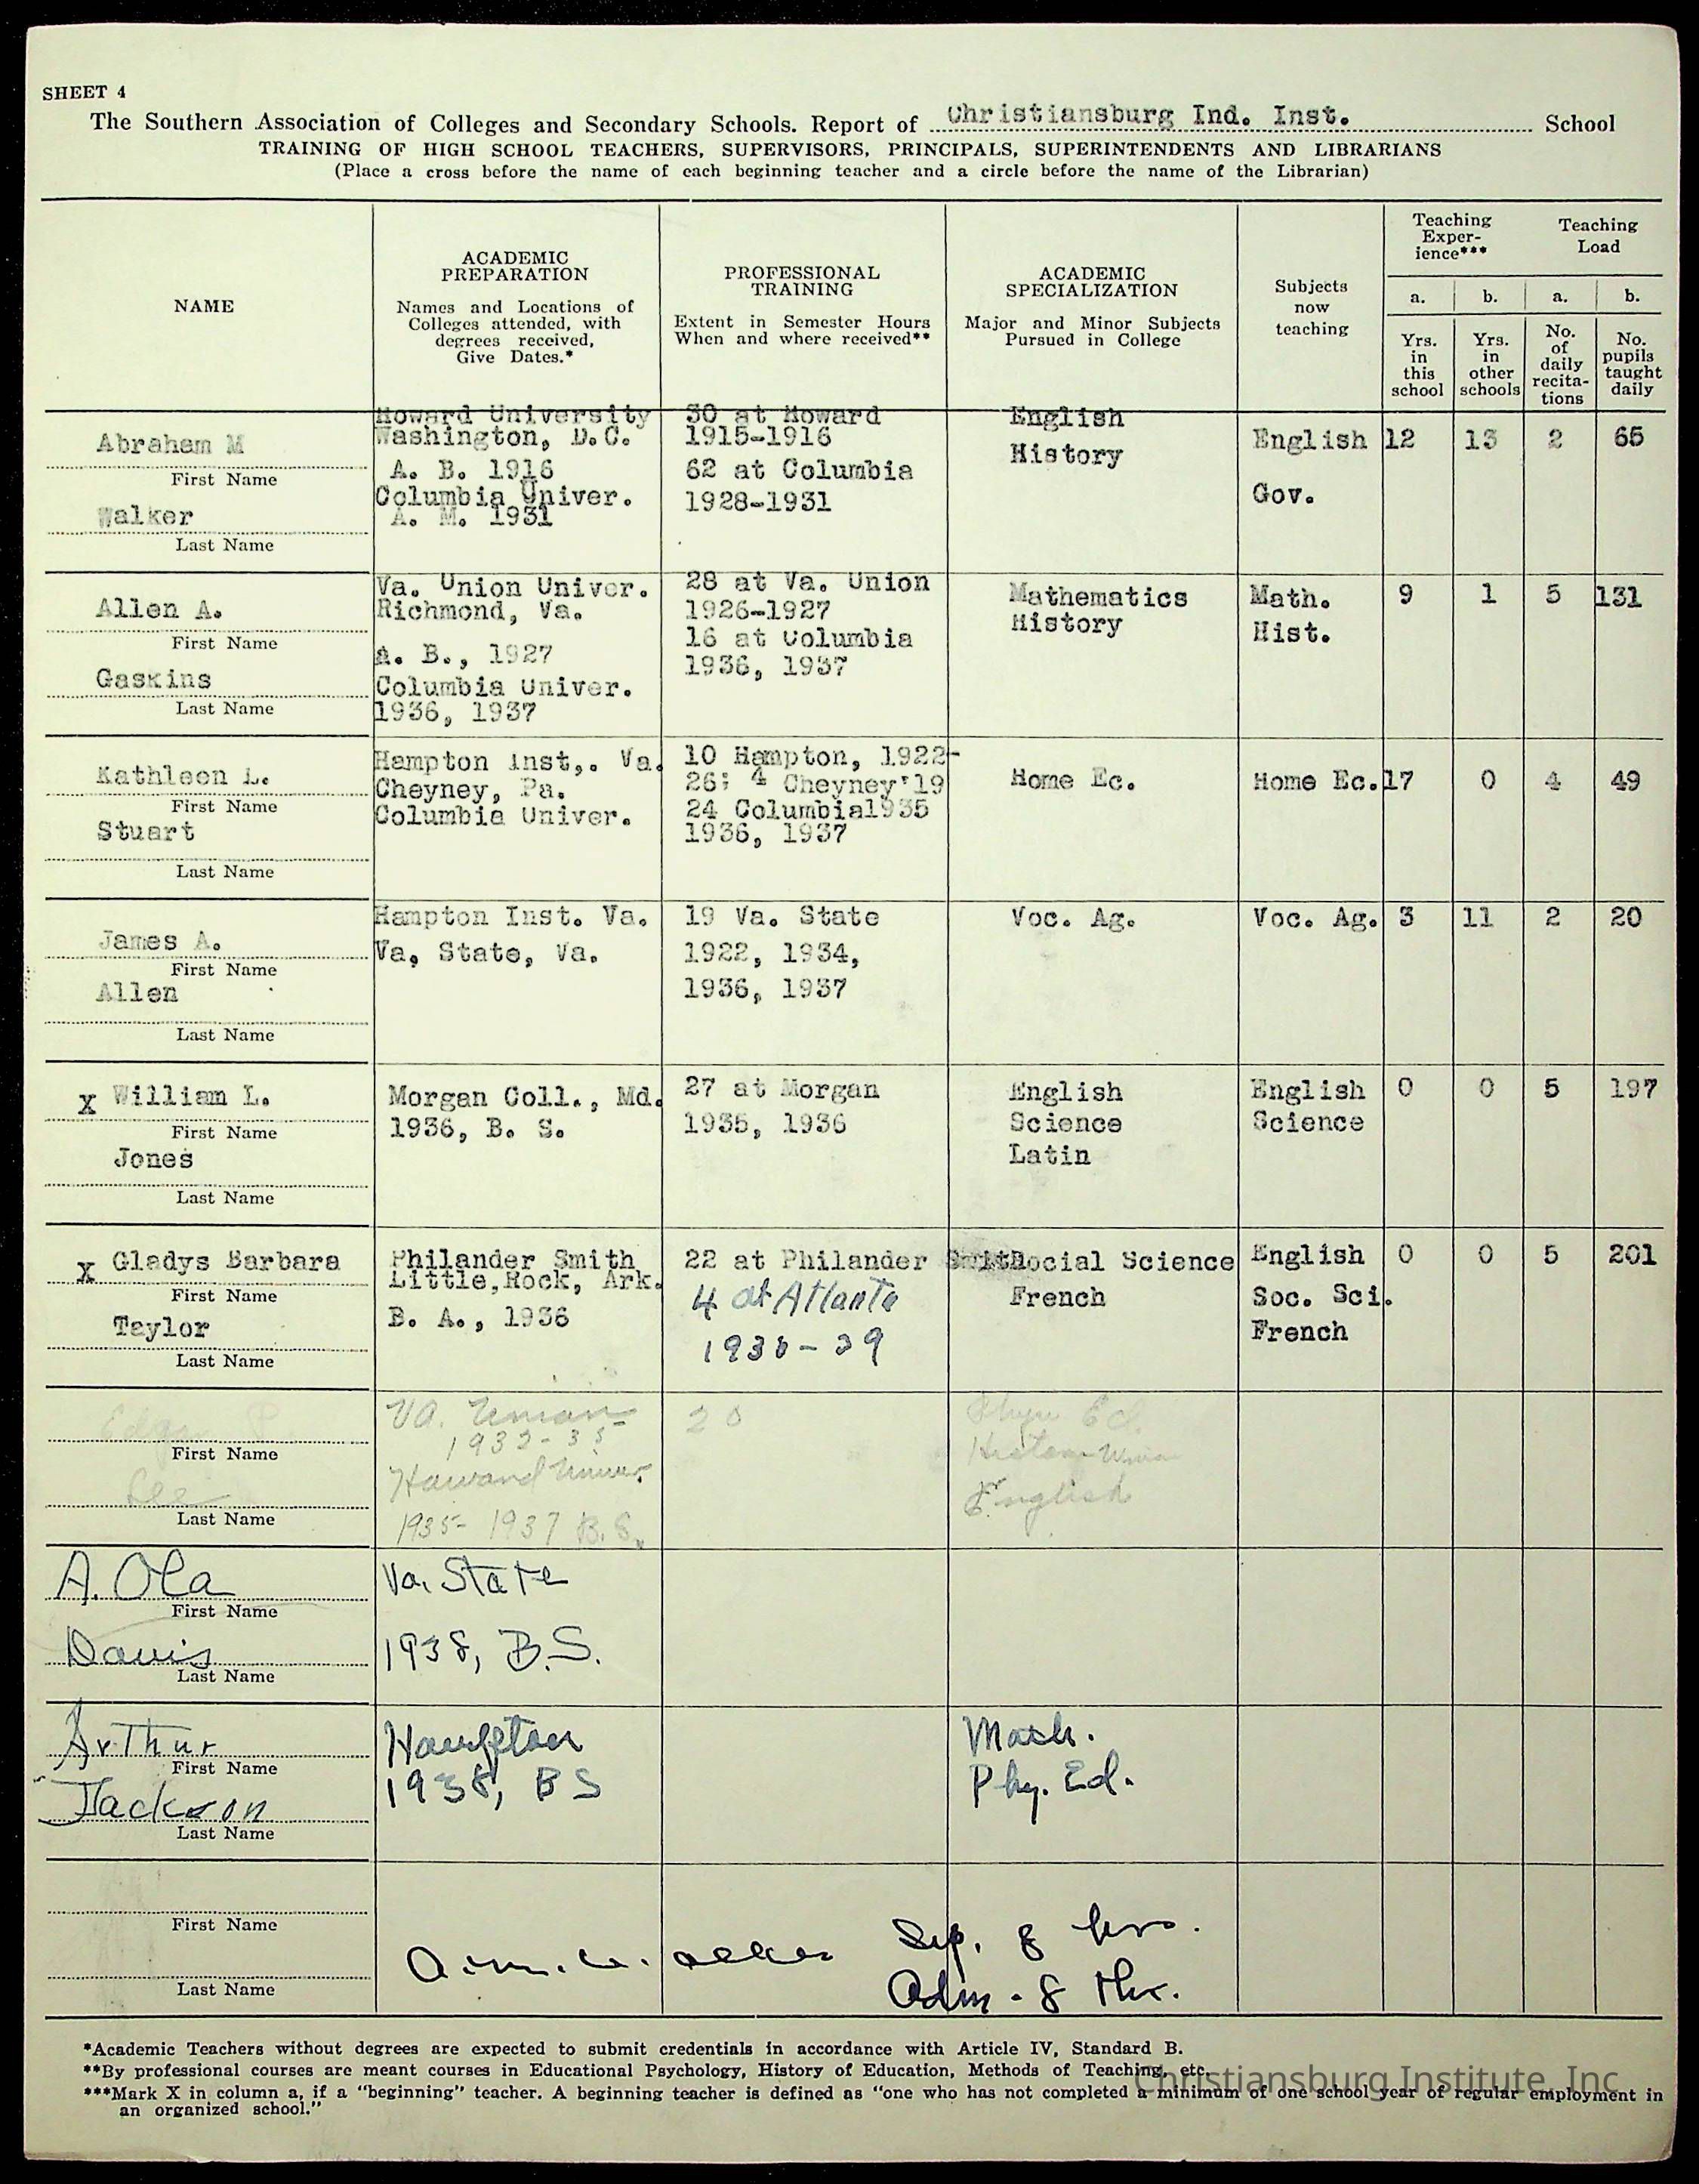 SHEET 4
The Southern Association of Colleges and Secondary Schools. Report of Christiansburg Ind. Inst. School
TRAINING OF HIGH SCHOOL TEACHERS, SUPERVISORS, PRINCIPALS, SUPERINTENDENTS AND LIBRARIANS
(Place a cross before the name of each beginning teacher and a circle before the name of the Librarian)
NAME
ACADEMIC
PREPARATION
Names and Locations of
Colleges attended, with
degrees received,
Give Dates.*
PROFESSIONAL
TRAINING
Extent in Semester Hours
When and where received**
ACADEMIC
SPECIALIZATION
Major and Minor Subjects
Pursued in College
Subjects
now
teaching
Teaching
Exper-
ience***
Teaching
Load
a. b. a. b.
Yrs.
in
this
school
Yrs.
in
other
schools
No.
of
daily
recita-
tions
No.
pupils
taught
daily
Abraham M
First Name
Walker
Last Name
Howard University
Washington, D.C.
A. B. 1916
Columbia Univer.
A. M. 1931
30 at Howard
1915-1916
62 at Columbia
1928-1931
English
History
English
Gov.
12 13 2 65
Allen A.
First Name
Gaskins
Last Name
Va. Union Univer.
Richmond, Va.
A. B., 1927
Columbia Univer.
1936, 1937
28 at Va. Union
1926-1927
16 at Columbia
1936, 1937
Mathematics
History
Math.
Hist.
9 1 5 131
Kathleen L.
First Name
Stuart
Last Name
Hampton Inst,. Va.
Cheyney, Pa.
Columbia Univer.
10 Hampton, 1922-
26; 4 Cheyney'19
24 Columbia1935
1936, 1937
Home Ec.
Home Ec.
17 0 4 49
James A.
First Name
Allen
Last Name
Hampton Inst. Va.
Va, State, Va.
19 Va. State
1922, 1934,
1936, 1937
Voc. Ag.
Voc. Ag.
3 11 2 20
X William L.
First Name
Jones
Last Name
Morgan Coll., Md.
1936, B. S.
27 at Morgan
1935, 1936
English
Science
Latin
English
Science
0 0 5 197
X Gladys Barbara
First Name
Taylor
Last Name
Philander Smith
Little,Rock, Ark.
B. A., 1936
22 at Philander Smith
4 at Atlanta
Social Science
French
English
Soc. Sci.
French
0 0 5 201
First Name
Lee
Last Name
Va. Union
Howard Univer.
1935- 1937 B.S.
20
English
A. Ola
First Name
Davis
Last Name
Va. State
1938, B.S.
Arthur
First Name
Jackson
Last Name
Hampton
1938, BS
Math.
Phy. Ed.
First Name
Last Name
A.M. Walker
*Academic Teachers without degrees are expected to submit credentials in accordance with Article IV, Standard B.
**By professional courses are meant courses in Educational Psychology, History of Education, Methods of Teaching, etc.
***Mark X in column a, if a "beginning" teacher. A beginning teacher is defined as "one who has not completed a minimum of one school year of regular employment in
an organized school."
Christiansburg Institute, Inc